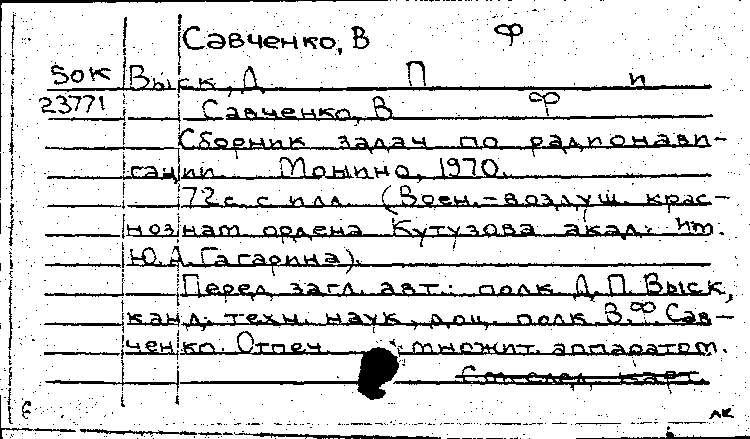 Савченко, В Ф
50К Выск, Д П и
23771 Савченко, В Ф
Сборник задач по радионави-
гации Монино, 1970.
72с. с илл (Воен.-воздуш. крас-
нознам ордена Кутузова акад. им.
Ю.А.Гагарина).
Перед загл. авт.: полк Д.П.Выск,
канд. техн. наук, доц. полк В.Ф.Сав-
ченко. Отпеч. множит. аппаратом.
См след. карт.
6 АК